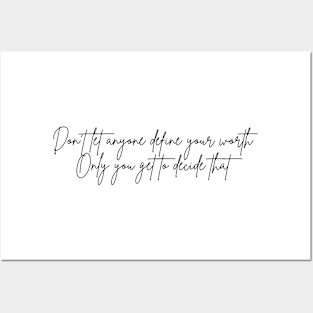 Don't let anyone define your worth
Only you get to decide that